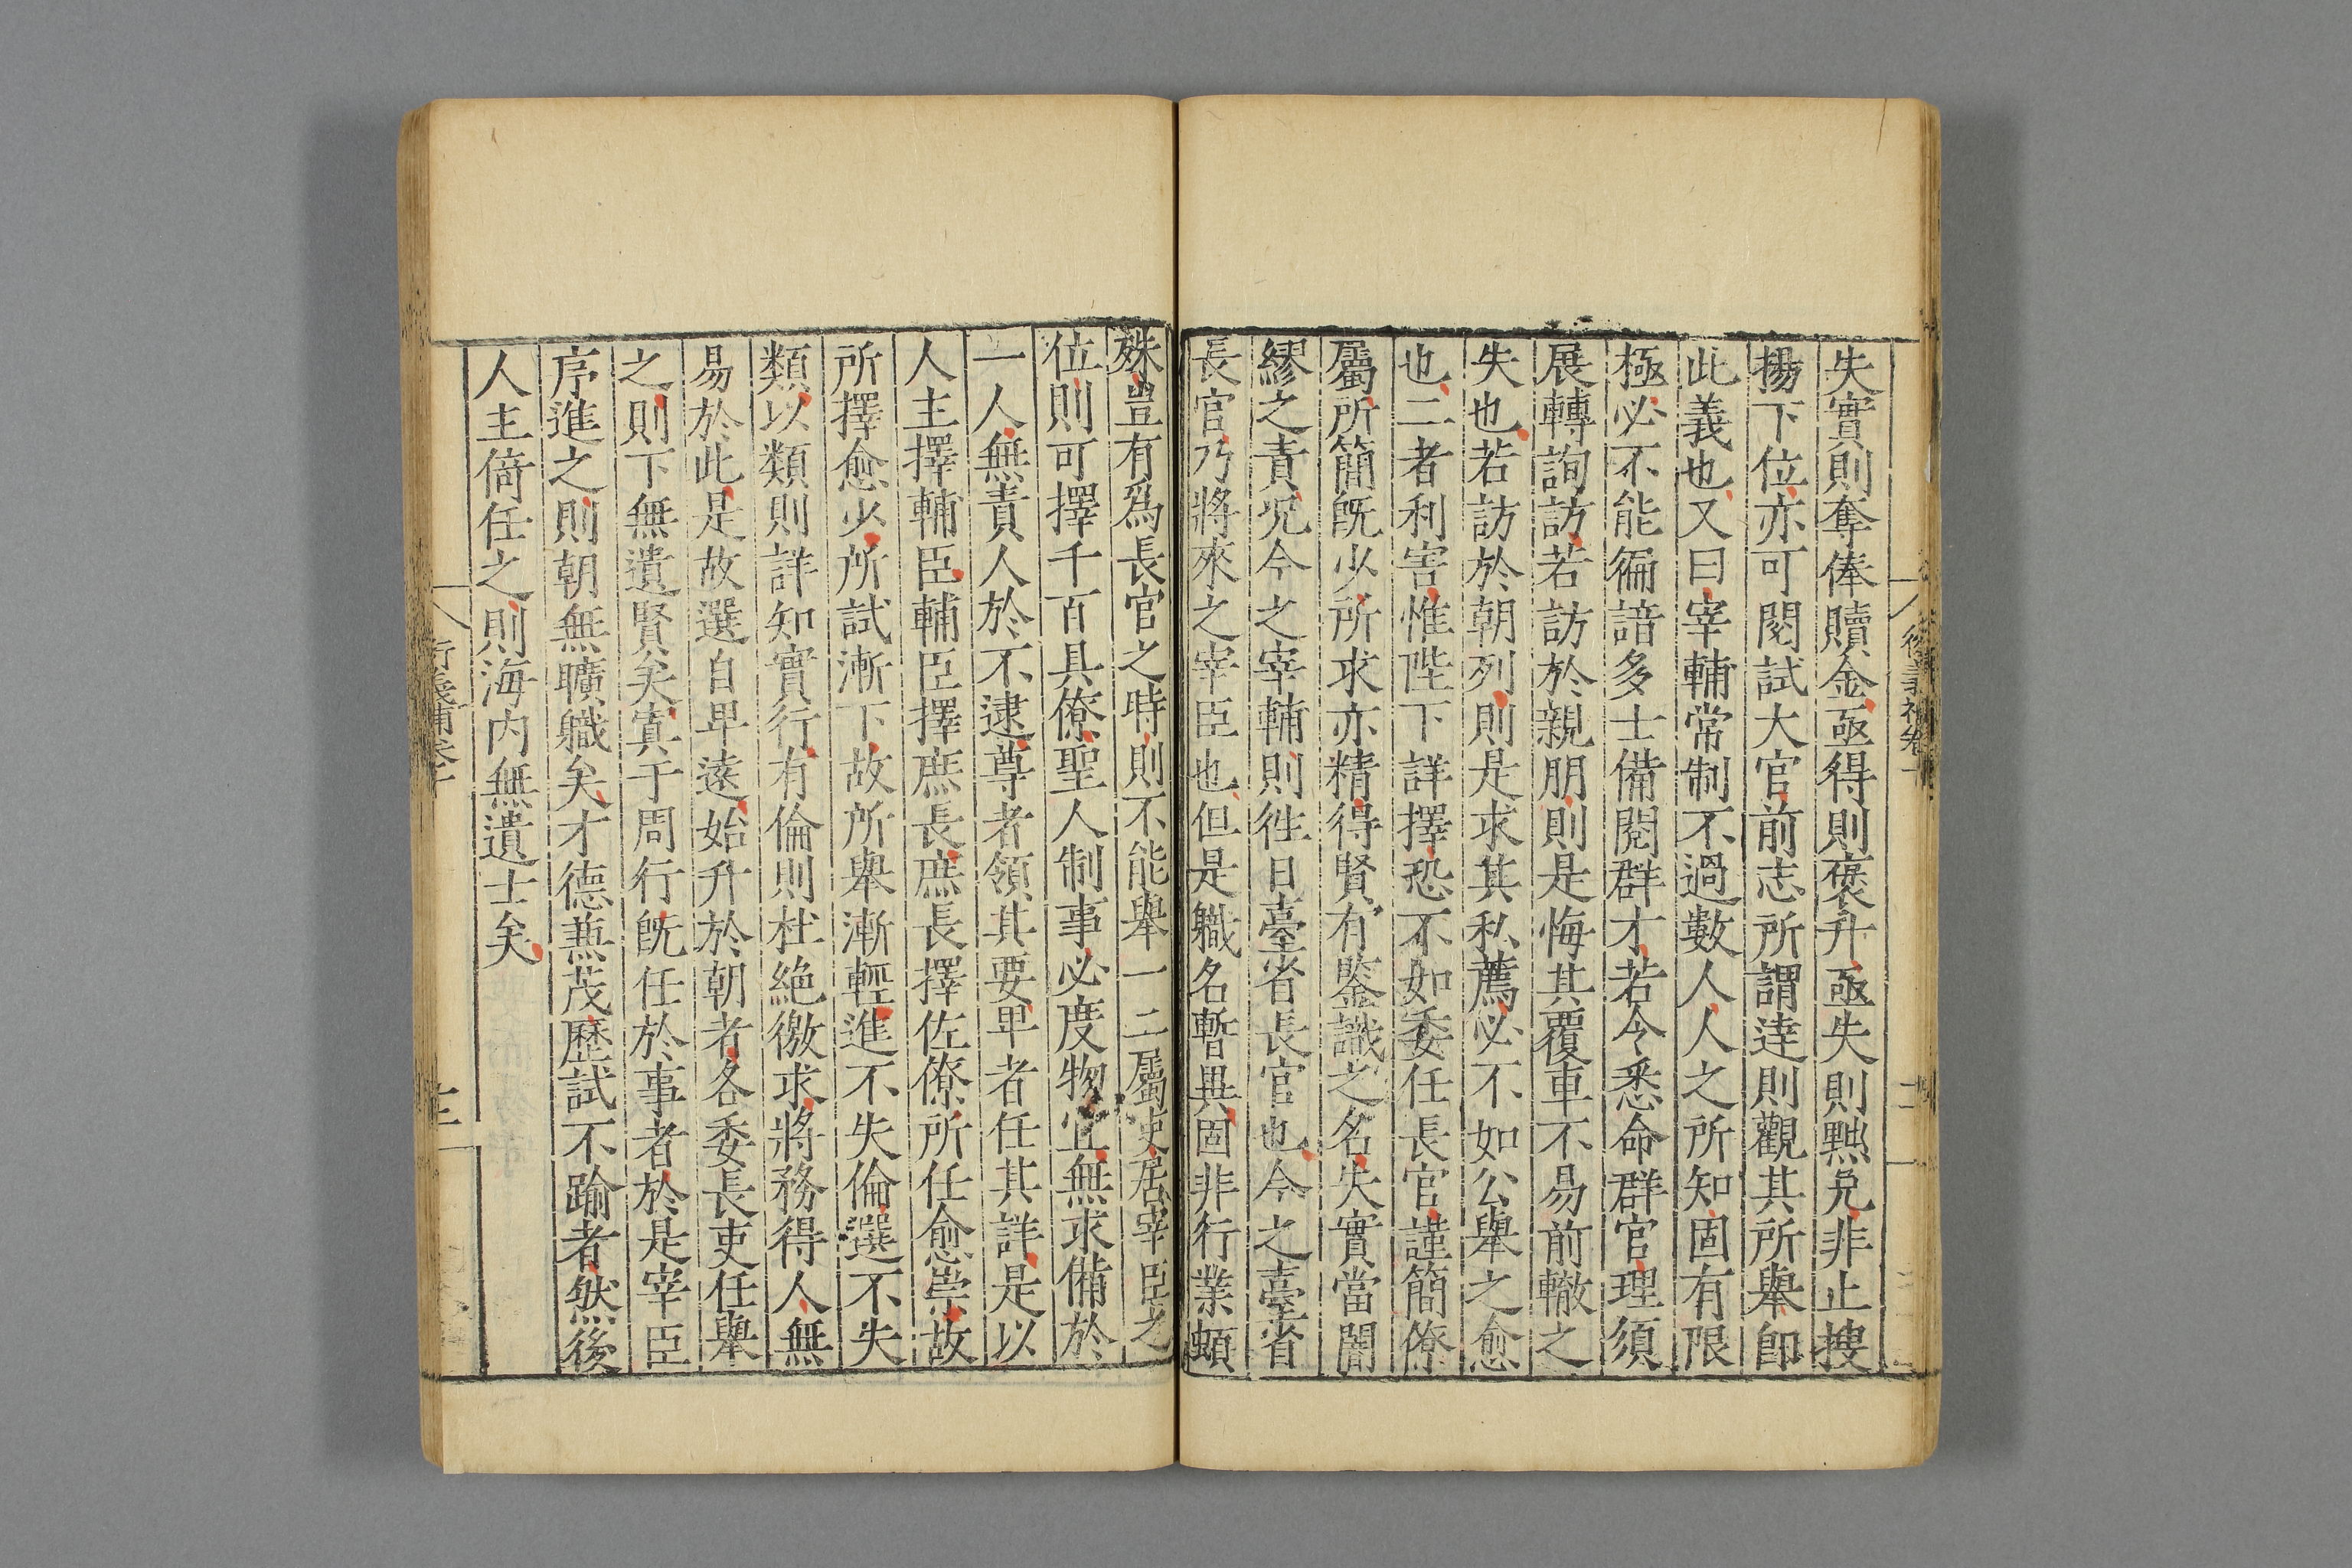 失實則奪俸贖金亟得則褒升亟失則黜免非止搜
揚下位亦可閱試大官前志所謂達則觀其所舉卽
此義也又曰宰輔常制不過數人人之所知固有限
極必不能徧諳多士備閱群才若令悉命群官理須
展轉詢訪若訪於親朋則是悔其覆車不易前轍之
失也若訪於朝列則是求其私薦必不如公舉之愈
也二者利害惟陛下詳擇恐不如委任長官謹簡僚
屬所簡旣少所求亦精得賢有鑒識之名失實當闇
繆之責况今之宰輔則徃日臺省長官也今之臺省
長官乃將來之宰臣也但是職名暫異固非行業頓
殊豈有爲長官之時則不能舉一二屬吏居宰臣之
位則可擇千百具僚聖人制事必度物宜無求備於
一人無責人於不逮尊者領其要卑者任其詳是以
人主擇輔臣輔臣擇庶長庶長擇佐僚所任愈崇故
所擇愈少所試漸下故所舉漸輕進不失倫選不失
類以類則詳知實行有倫則杜絶徼求將務得人無
易於此是故選自卑遠始升於朝者各委長吏任舉
之則下無遺賢矣寘于周行旣任於事者於是宰臣
序進之則朝無曠職矣才德兼茂歷試不踰者然後
人主倚任之則海内無遺士矣